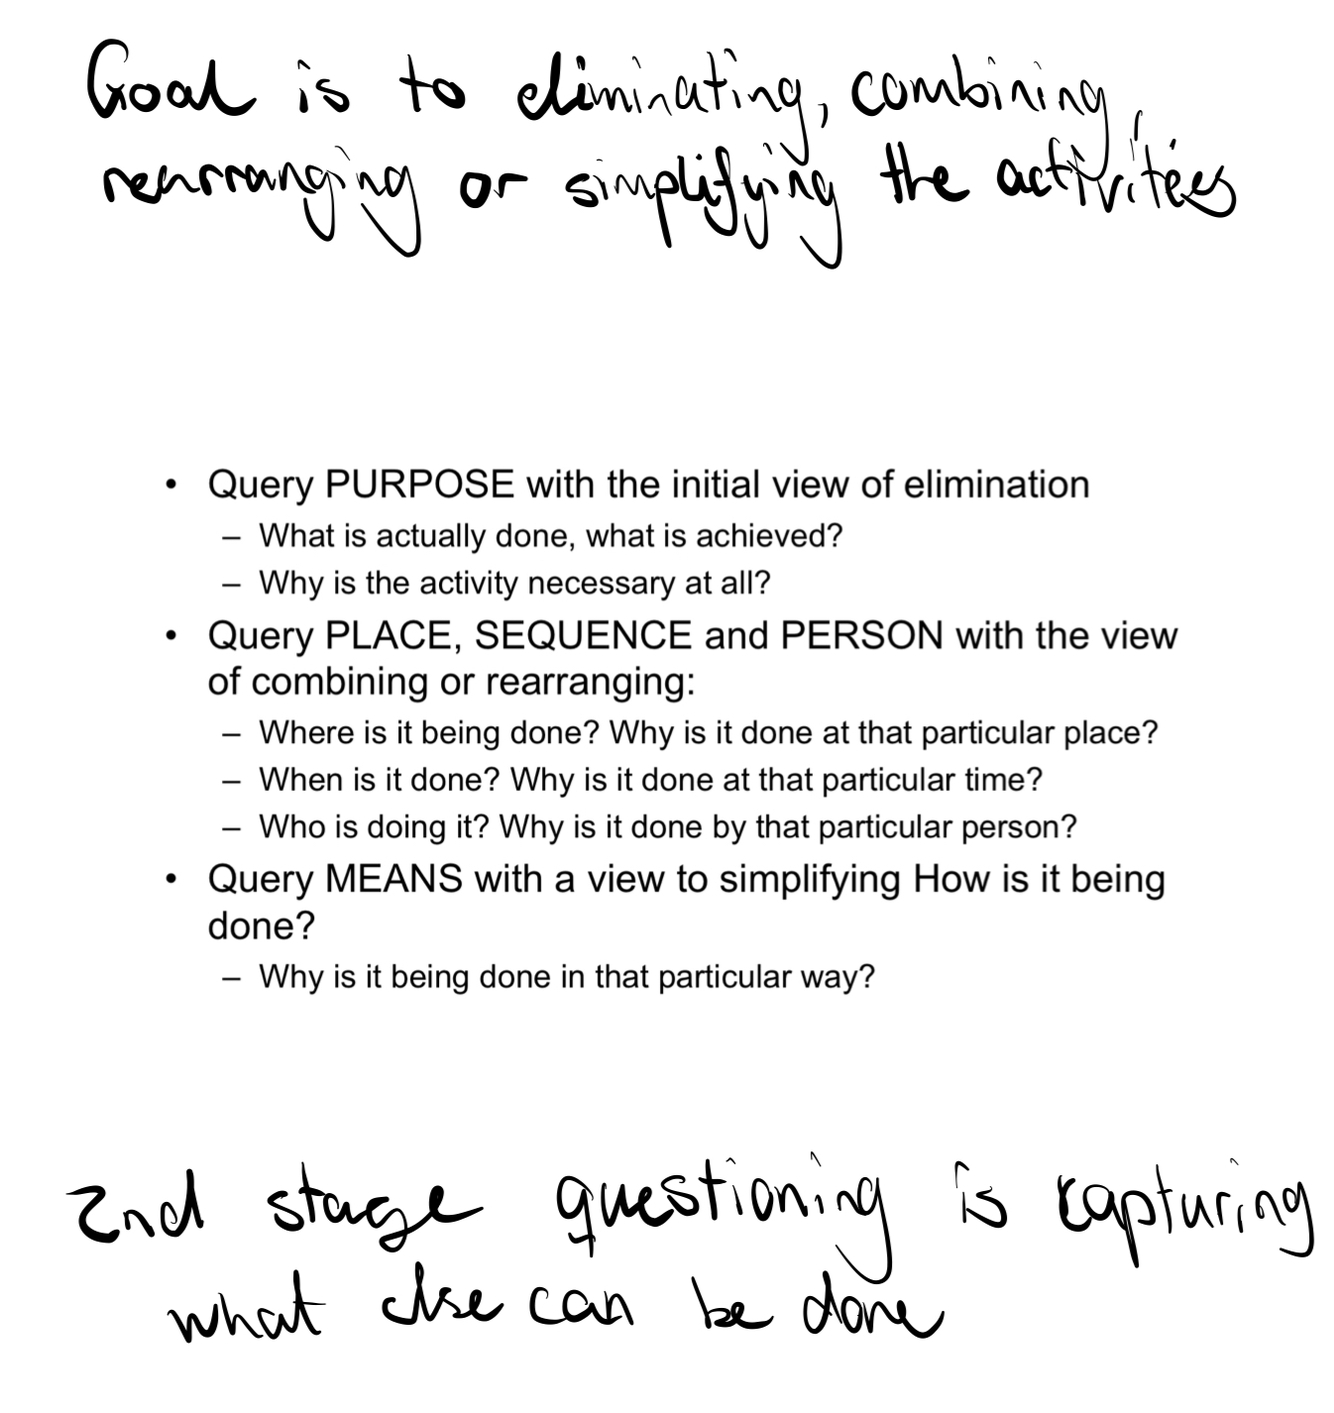 Goal is to eliminating, combining,
rearranging or simplifying the activities
• Query PURPOSE with the initial view of elimination
– What is actually done, what is achieved?
– Why is the activity necessary at all?
• Query PLACE, SEQUENCE and PERSON with the view
of combining or rearranging:
– Where is it being done? Why is it done at that particular place?
– When is it done? Why is it done at that particular time?
– Who is doing it? Why is it done by that particular person?
• Query MEANS with a view to simplifying How is it being
done?
– Why is it being done in that particular way?
2nd stage questioning is capturing
what else can be done